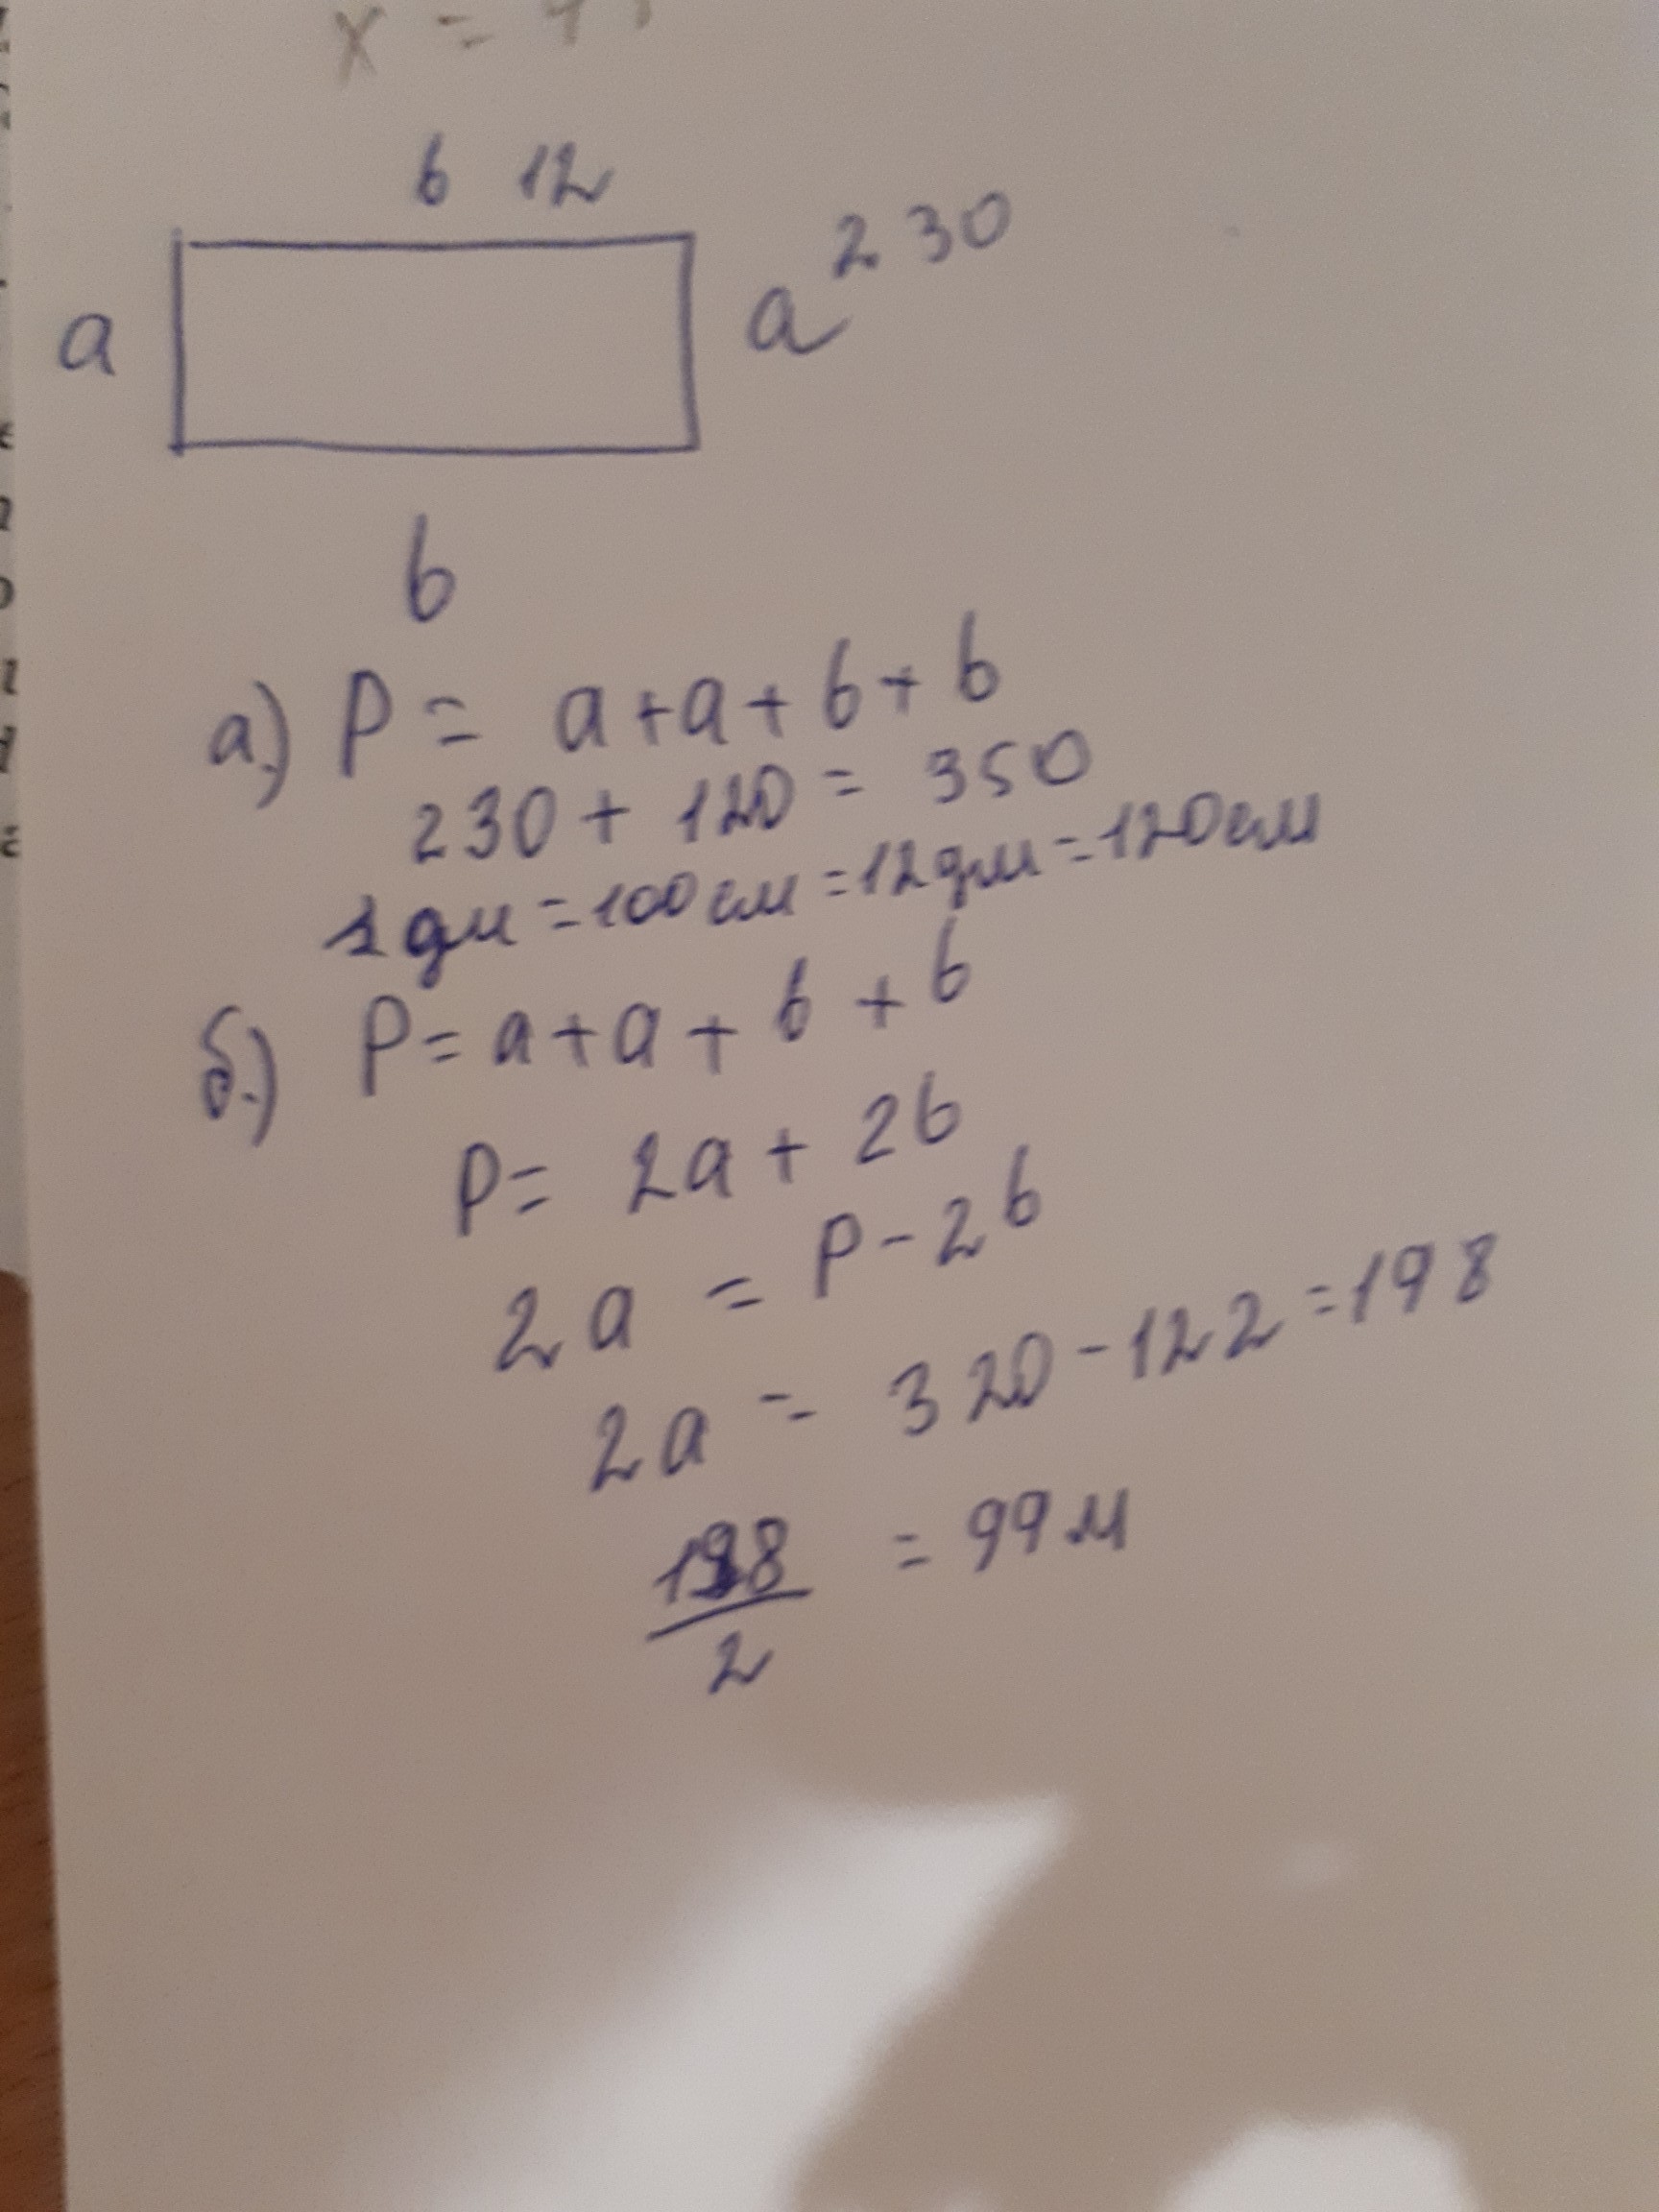 x =
b 12
a
a 230
b
а.) P = a + a + b + b
230 + 120 = 350
1 дм = 100 см = 12 дм = 120 см
б.) P = a + a + b + b
P = 2a + 2b
2a = P - 2b
2a = 320 - 122 = 198
198/2 = 99 м